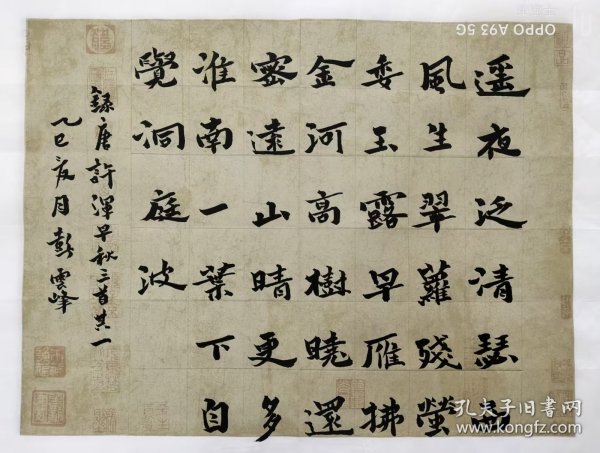 遥夜泛清瑟西
風生翠蘿殘螢
委玉露早雁拂
金河高樹曉還
密遠山晴更多
淮南一葉下自
覺洞庭波
錄唐許渾早秋三首其一
乙巳夏月彭雲峰
OPPO A93 5G
孔夫子旧书网
www.kongfz.com